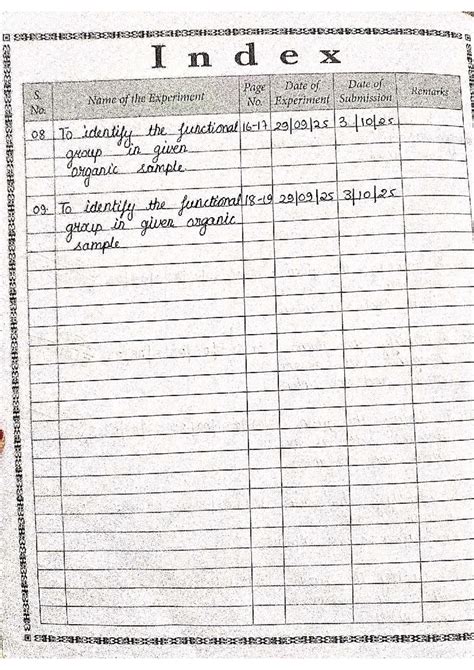 Index
S. No.
Name of the Experiment
Page No.
Date of Experiment
Date of Submission
Remarks
08 To identify the functional 16-17 29/09/25 3/10/25
group in given
organic sample
09. To identify the functional 18-19 29/09/25 3/10/25
group in given organic
sample